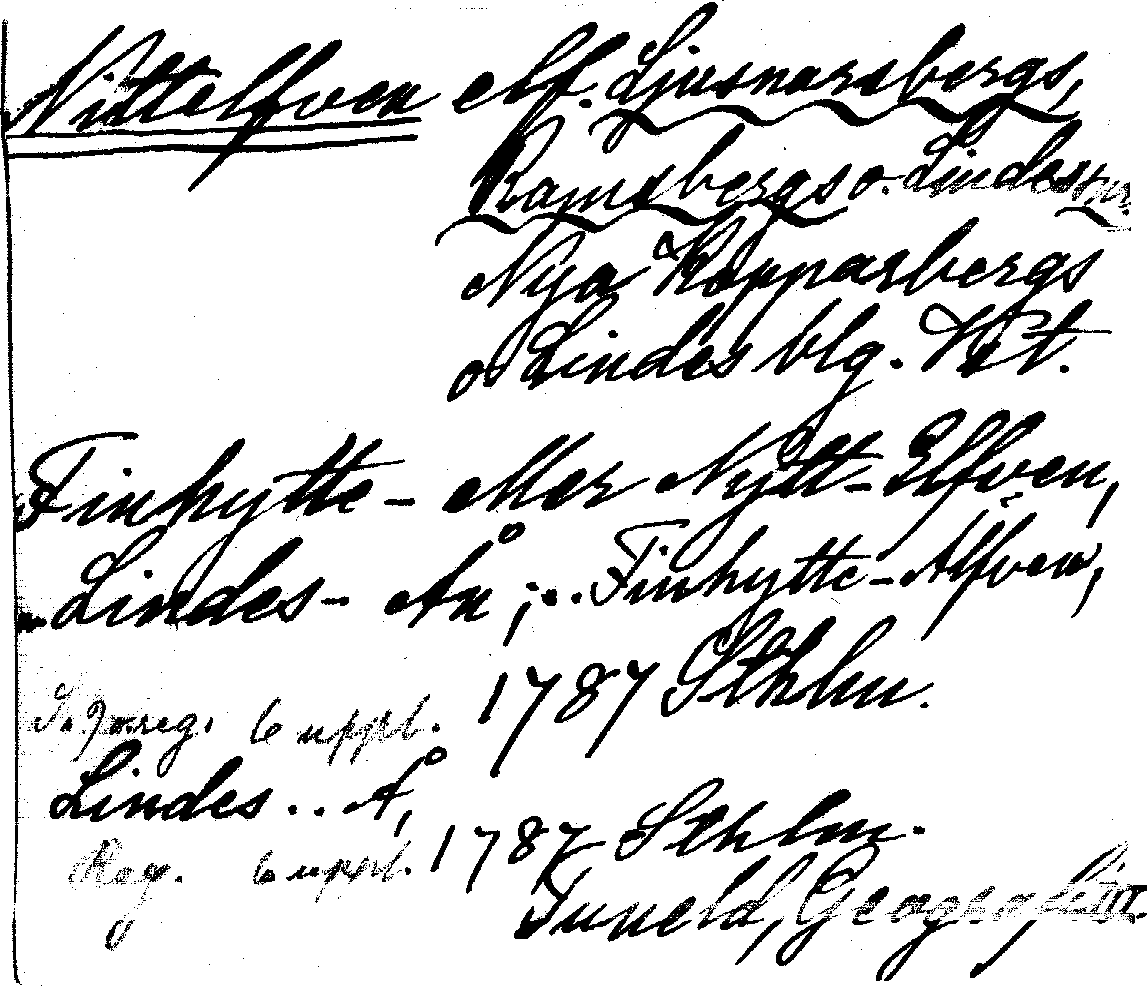 Nittelfven elf. Ljusnarsbergs,
Ramsbergs o. Lindes snr.
Nya Kopparbergs
o. Lindes blg. Vst.
Finhytte- eller Nytt-Elfven,
Lindes- Ån; .. Finhytte-Älfven,
1787 Sthlm.
S. 6 uppl.
Lindes .. Å,
Reg. 6 uppl. 1787 Sthlm.
Tuneld, Geografi III.